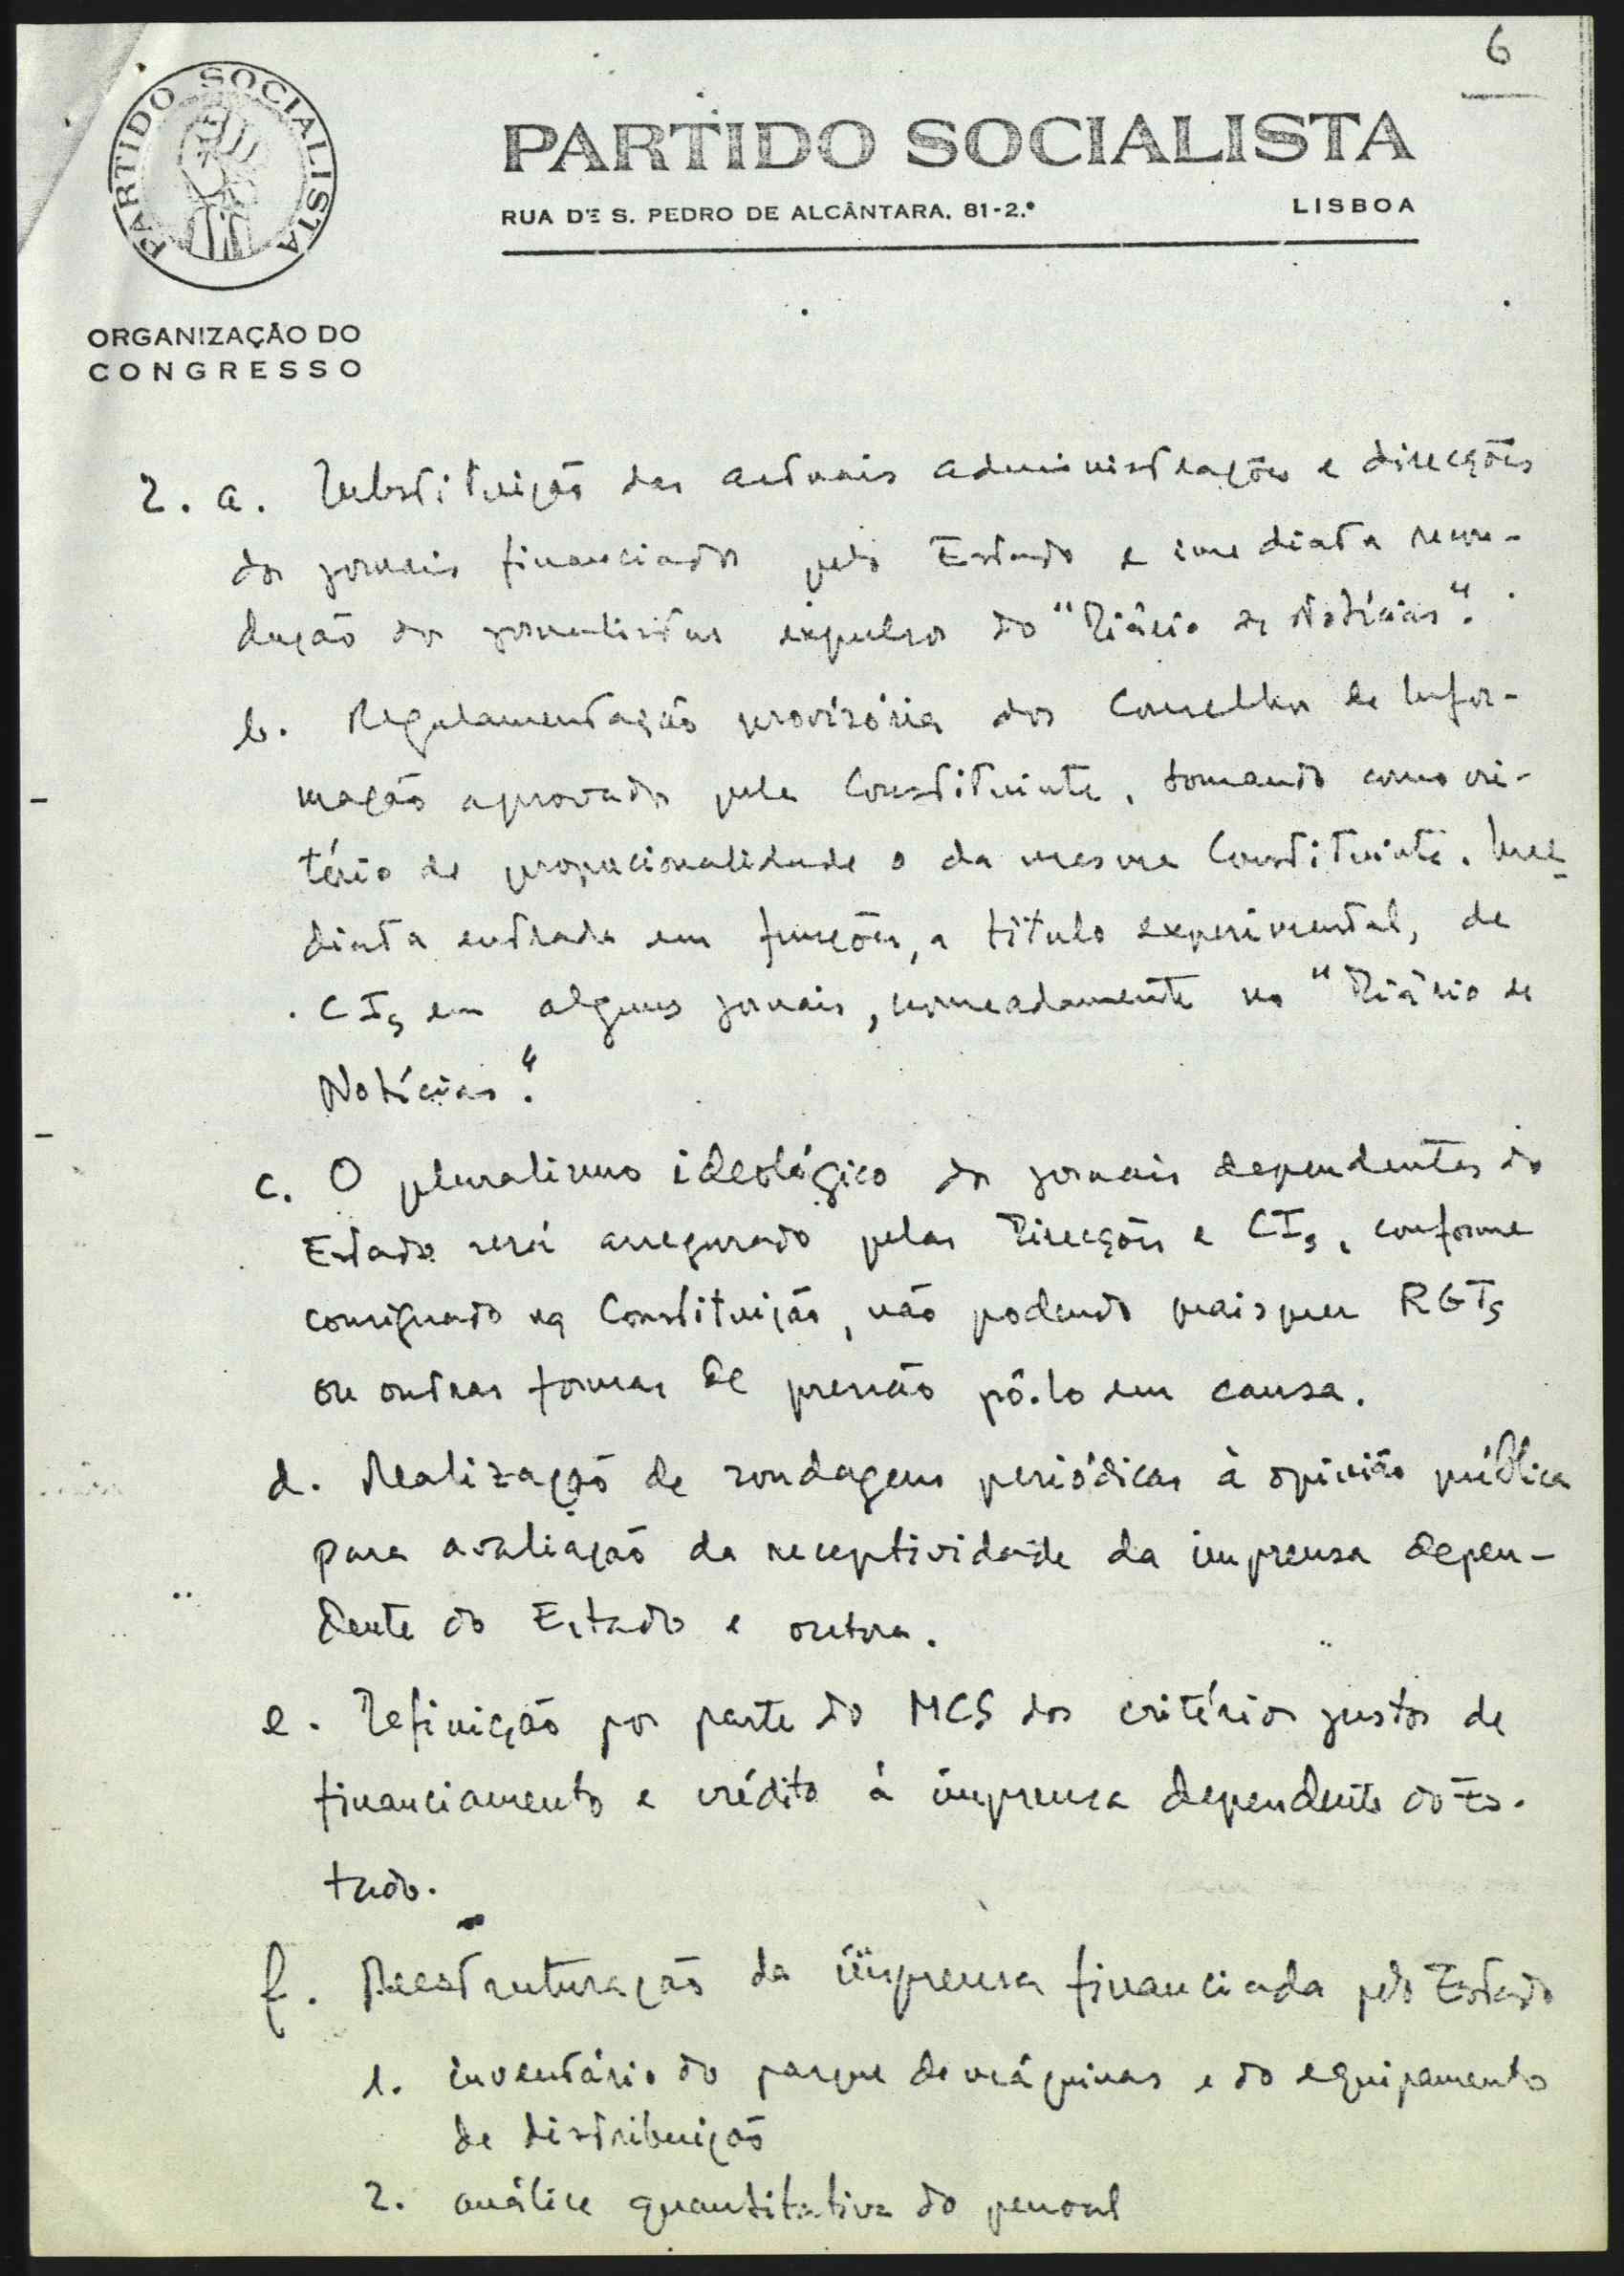 6
PARTIDO SOCIALISTA
PARTIDO SOCIALISTA
RUA DE S. PEDRO DE ALCÂNTARA, 81-2.º LISBOA
ORGANIZAÇÃO DO
CONGRESSO
2. a. Substituição das actuais administrações e direcções
dos jornais financiados pelo Estado e imediata recon-
dução dos jornalistas expulsos do "Diário de Notícias".
b. Regulamentação provisória dos Conselhos de Infor-
mação aprovados pela Constituinte, tomando como cri-
tério de proporcionalidade o da mesma Constituinte. Ime-
diata entrada em funções, a título experimental, de
CIs em alguns jornais, nomeadamente no "Diário de
Notícias".
c. O pluralismo ideológico dos jornais dependentes do
Estado será assegurado pelas Direcções e CIs, conforme
consignado na Constituição, não podendo quaisquer RGTs
ou outras formas de pressão pô-lo em causa.
d. Realização de sondagens periódicas à opinião pública
para avaliação da receptividade da imprensa depen-
dente do Estado e outra.
e. Definição por parte do MCS dos critérios justos de
financiamento e crédito à imprensa dependente do Es-
tado.
f. Reestruturação da imprensa financiada pelo Estado
1. inventário do parque de máquinas e do equipamento
de distribuição
2. análise quantitativa do pessoal